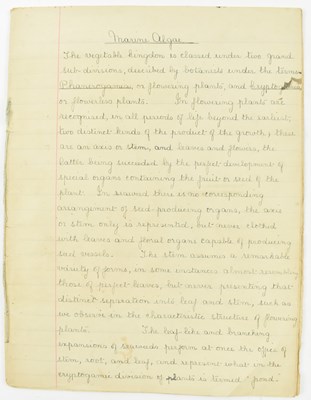 Marine Algae
The vegetable kingdom is classed under two grand
sub-divisions, described by botanists under the
Phanerogamia, or flowering plants, and
or flowerless plants. In flowering plants are
recognised, in all periods of life beyond the earliest,
two distinct kinds of the product of the growth; these
are an axis or stem, and leaves and flowers, the
latter being succeeded by the perfect development of
special organs containing the fruit or seed of the
plant. In seaweed there is no corresponding
arrangement of seed-producing organs, the axis
or stem only is represented, but never clothed
with leaves and floral organs capable of producing
seed vessels. The stem assumes a remarkable
variety of forms, in some instances almost resembling
those of perfect leaves, but never presenting that
distinct separation into leaf and stem, such as
we observe in the characteristic structure of flowering
plants. The leaf-like and branching
expansions of seaweeds perform at once the office of
stem, root, and leaf, and represent what in the
cryptogamic division of plants is termed "frond.